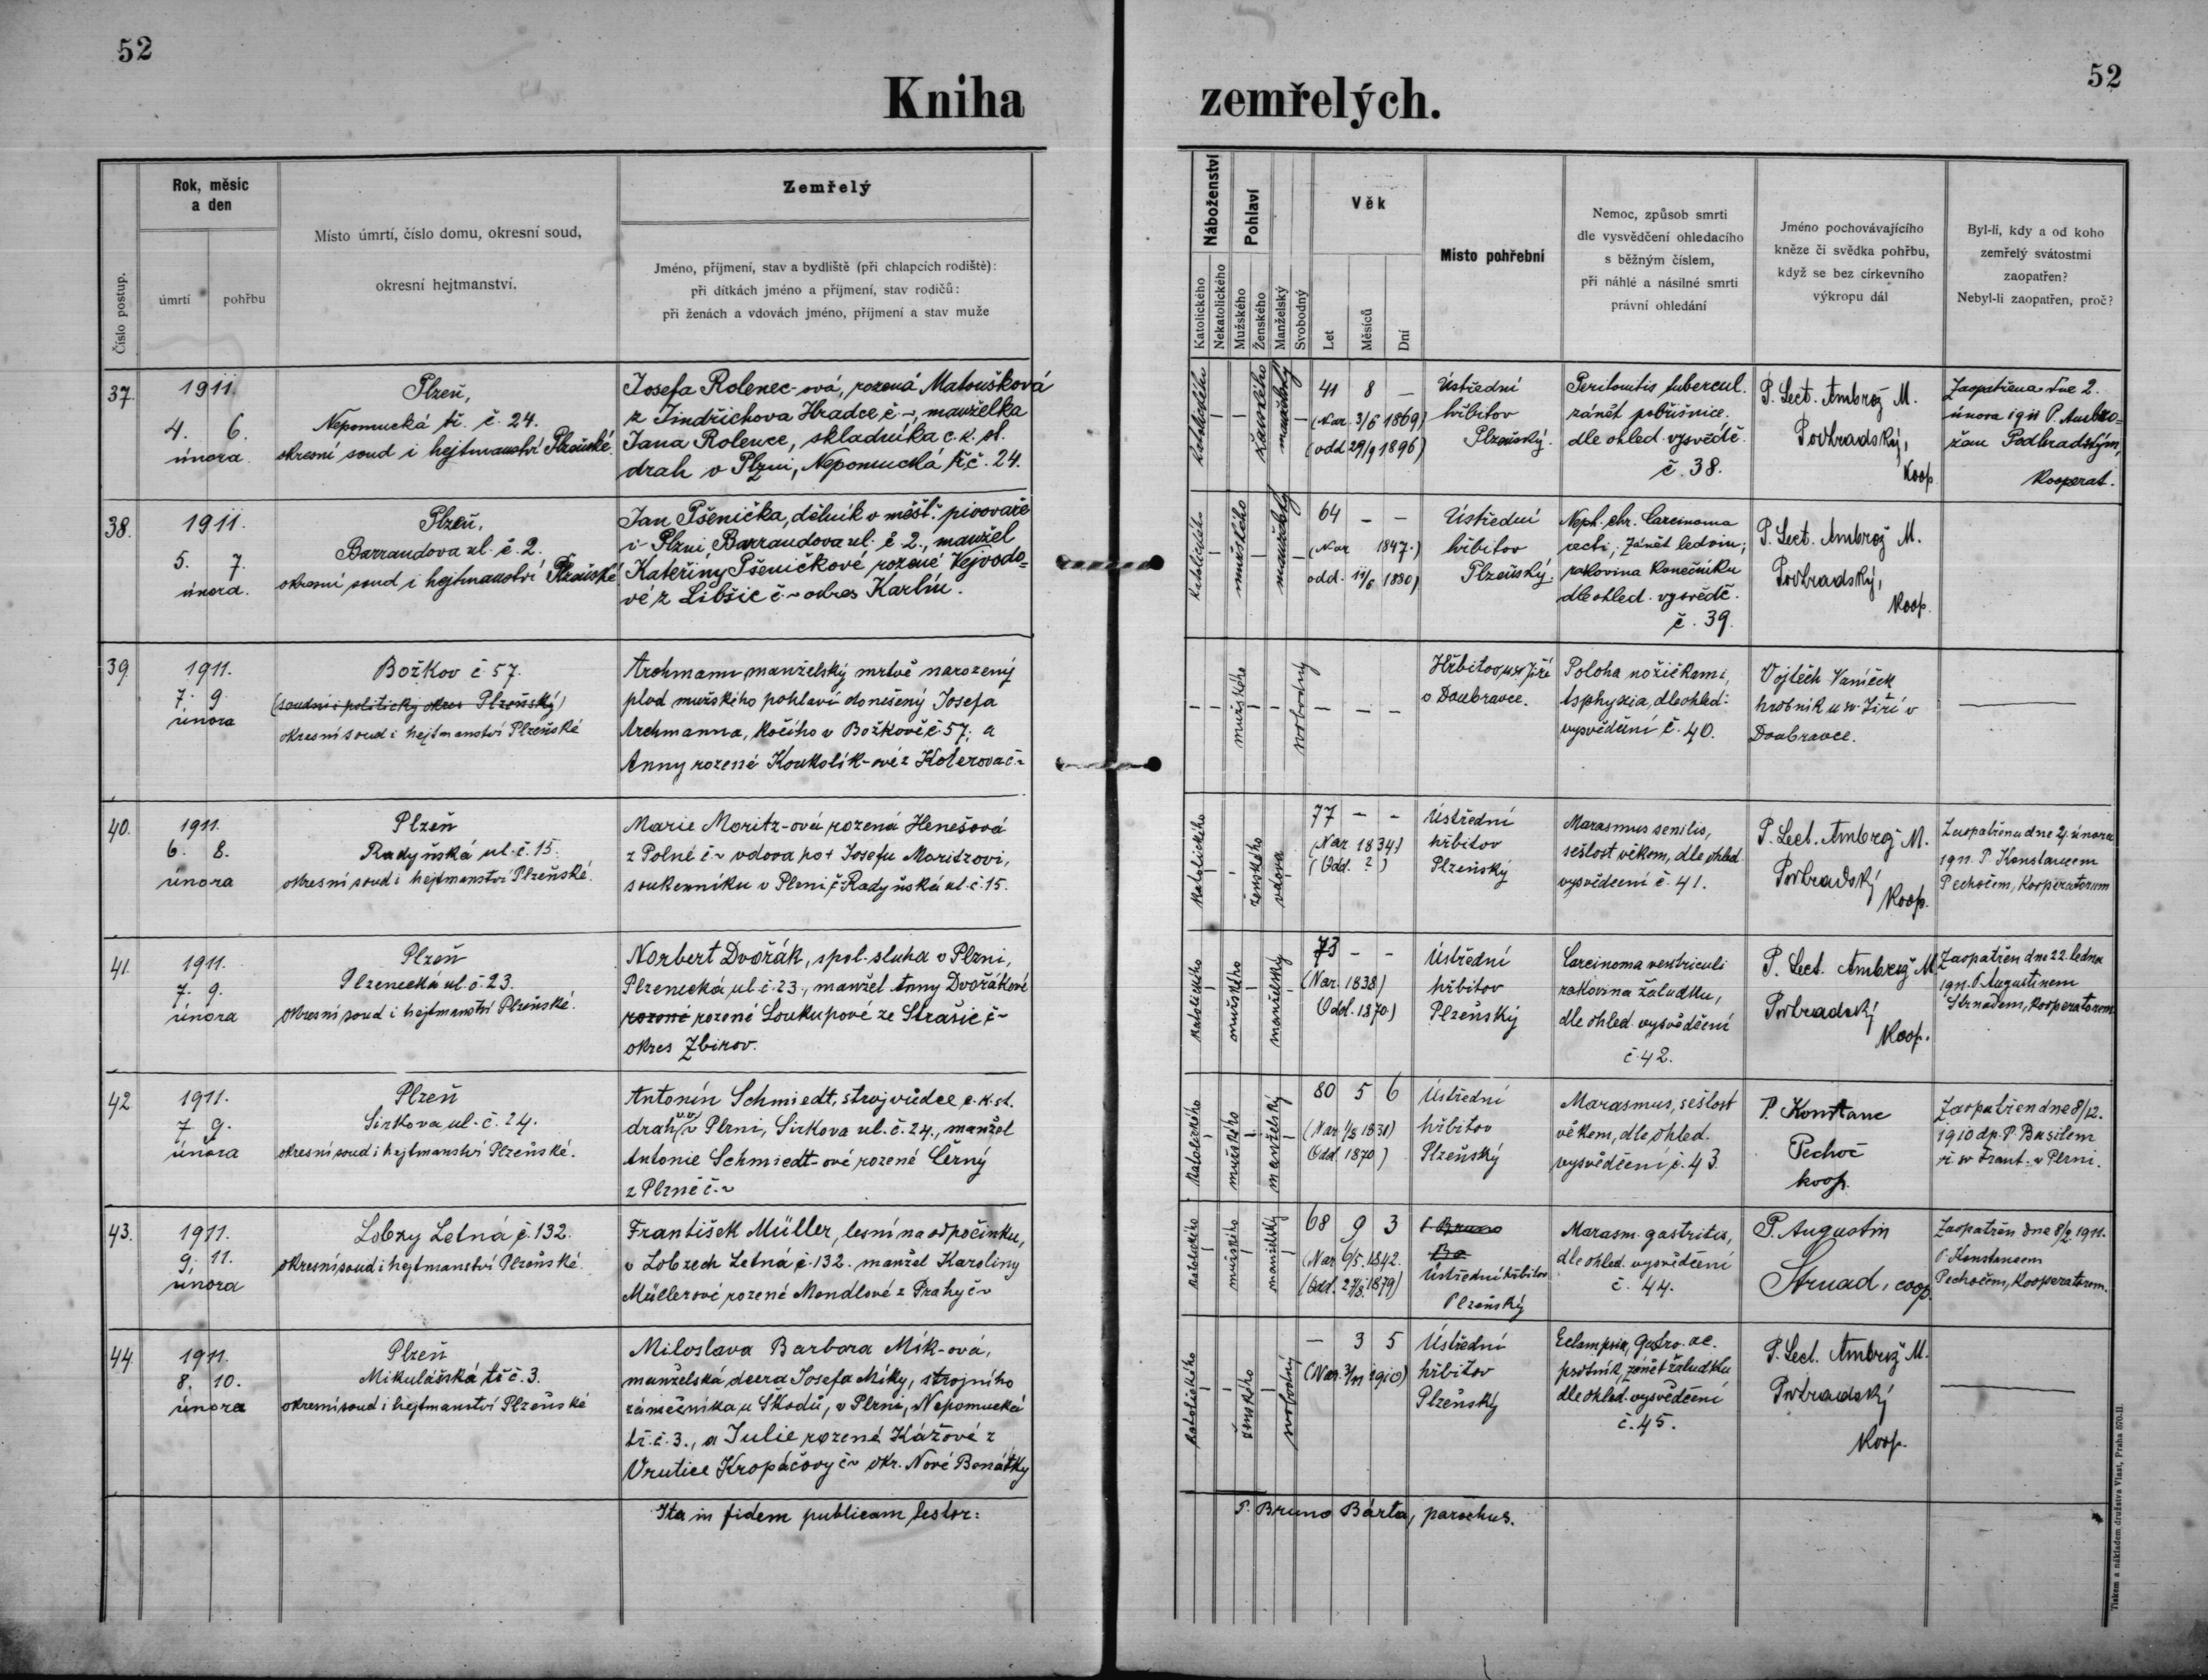 52
52
Kniha zemřelých.
Číslo postup.
Rok, měsíc
a den
úmrtí
pohřbu
Místo úmrtí, číslo domu, okresní soud,
okresní hejtmanství.
Zemřelý
Jméno, příjmení, stav a bydliště (při chlapcích rodiště):
při dítkách jméno a příjmení, stav rodičů:
při ženách a vdovách jméno, příjmení a stav muže
Náboženství
Katolického
Nekatolického
Pohlaví
Mužského
Ženského
Manželský
Svobodný
Věk
Let
Měsíců
Dní
Místo pohřební
Nemoc, způsob smrti
dle vysvědčení ohledacího
s běžným číslem,
při náhlé a násilné smrti
právní ohledání
Jméno pochovávajícího
kněze či svědka pohřbu,
když se bez církevního
výkropu dál
Byl-li, kdy a od koho
zemřelý svátostmi
zaopatřen?
Nebyl-li zaopatřen, proč?
37.
1911.
4. 6.
února.
Plzeň,
Nepomucká tř. č. 24.
okresní soud i hejtmanství Plzeňské.
Josefa Rolenec-ová, rozená Matoušková
z Jindřichova Hradce č ~, manželka
Jana Rolence, skladníka c. k. st.
drah v Plzni, Nepomucká tř č. 24.
Katolického
ženského
manželský
41 8 —
(Nar. 3/6 1869)
(odd 29/9 1896)
Ústřední
hřbitov
Plzeňský.
Peritonitis tubercul.
zánět pobřišnice.
dle ohled. vysvědč.
č. 38.
P. Lect. Ambrož M.
Podhradský,
Koop.
Zaopatřena dne 2.
února 1911 P. Ambro=
žem Podhradským,
Kooperat.
38.
1911.
5. 7.
února.
Plzeň,
Barraudova ul. č. 2.
okresní soud i hejtmanství Plzeňské
Jan Pšenička, dělník v měšť. pivovaře
v Plzni, Barraudova ul. č. 2., manžel
Kateřiny Pšeničkové rozené Vejvodo=
vé z Libšic č ~ okres Karlín.
Katolického
mužského
manželský
64 — —
(Nar 1847.)
odd. 11/6 1880)
Ústřední
hřbitov
Plzeňský.
Neph. chr. Carcinoma
recti, zánět ledvin,
rakovina konečníku
dle ohled. vysvědč.
č. 39.
P. Lect. Ambrož M.
Podhradský,
Koop.
39.
1911.
7. 9.
února
Božkov č. 57.
(soudní i politický okres Plzeňský)
okresní soud i hejtmanství Plzeňské
Archmann, manželský mrtvě narozený
plod mužského pohlaví donešený Josefa
Archmanna, kočího v Božkově č. 57; a
Anny rozené Koukolík-ové z Koterova č ~
mužského
svobodný
— — —
Hřbitov u sv Jiří
v Doubravce.
Poloha nožičkami,
Asphyxia, dle ohled:
vysvědčení č. 40.
Vojtěch Vaníček
hrobník u sv. Jiří v
Doubravce.
40.
1911.
6. 8.
února
Plzeň
Radyňská ul. č. 15.
okresní soud i hejtmanství Plzeňské.
Marie Moritz-ová rozená Henešová
z Polné č ~ vdova po + Josefu Moritzovi,
soukenníku v Plzni, Radyňská ul. č. 15.
Katolického
ženského
vdova
77 — —
(Nar 1834)
(Odd. ?)
Ústřední
hřbitov
Plzeňský
Marasmus senilis,
sešlost věkem, dle ohled.
vysvědčení č. 41.
P. Lect. Ambrož M.
Podhradský
Koop.
Zaopatřena dne 4. února
1911. P. Konstancem
Pechočem, Kooperatorem
41.
1911.
7. 9.
února
Plzeň
Plzenecká ul. č. 23.
okresní soud i hejtmanství Plzeňské.
Norbert Dvořák, spol. sluha v Plzni,
Plzenecká ul. č. 23., manžel Anny Dvořákové
rozené rozené Loukupové ze Strašic č ~
okres Zbirov.
Katolického
mužského
manželský
73 — —
(Nar. 1838)
(Odd. 1870)
Ústřední
hřbitov
Plzeňský
Carcinoma ventriculi
rakovina žaludku,
dle ohled. vysvědčení
č. 42.
P. Lect. Ambrož M.
Podhradský
Koop.
Zaopatřen dne 22. ledna
1911. P. Augustinem
Strnadem, Kooperatorem
42
1911.
7 9.
února
Plzeň
Sirkova ul. č. 24.
okresní soud i hejtmanství Plzeňské.
Antonín Schmiedt, strojvůdce c. k. st.
drah v. v. v Plzni, Sirkova ul. č. 24., manžel
Antonie Schmiedt-ové rozené Černý
z Plzně č. ~
Katolického
mužského
manželský
80 5 6
Odd. 1870)
Ústřední
hřbitov
Plzeňský
Marasmus, sešlost
věkem, dle ohled.
vysvědčení č. 43.
P. Konstanc
Pechoč
koop.
Zaopatřen dne 8/12.
1910 dp. P. Basilem
ř. sv Frant. v Plzni.
43.
1911.
9. 11.
února
Lobzy Letná č. 132.
okresní soud i hejtmanství Plzeňské.
František Müller, lesní na odpočinku,
v Lobzech Letná č. 132. manžel Karoliny
Müllerové rozené Mendlové z Prahy č ~
Katolického
mužského
manželský
68 9 3
(Nar 6/5. 1842.
(Odd. 27/8. 1879)
P. Bruno
Ba
Ústřední hřbitov
Plzeňský
Marasm. gastritis,
dle ohled. vysvědčení
č. 44.
P. Augustin
Strnad, coop.
Zaopatřen dne 8/2. 1911.
P. Konstancem
Pechočem, Kooperatorem.
44.
1911.
8. 10.
února
Plzeň
Mikulášská tř č. 3.
okresní soud i hejtmanství Plzeňské
Miloslava Barbora Mík-ová,
manželská dcera Josefa Míky, strojního
zámečníka u Škodů, v Plzni, Nepomucká
tř. č. 3., a Julie rozené Kážové z
Vrutice Kropáčovy č ~ okr. Nové Benátky
Katolického
ženského
svobodný
— 3 5
(Nar. 3/11 1910)
Ústřední
hřbitov
Plzeňský
Eclampsia, Gastro. ac.
psotník, zánět žaludku
dle ohled. vysvědčení
č. 45.
P. Lect. Ambrož M.
Podhradský
Koop.
Ita in fidem publicam testor:
P. Bruno Bárta, parochus.
Tiskem a nákladem družstva Vlast, Praha 570-II.